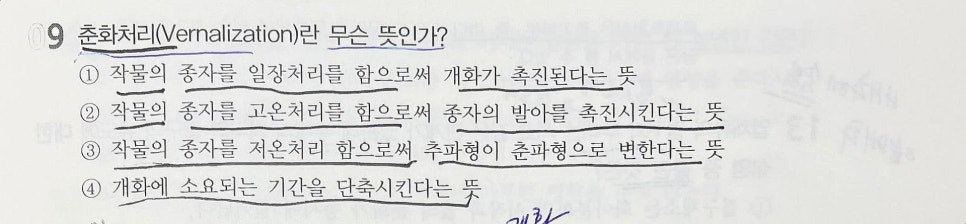 9 춘화처리(Vernalization)란 무슨 뜻인가?
① 작물의 종자를 일장처리를 함으로써 개화가 촉진된다는 뜻
② 작물의 종자를 고온처리를 함으로써 종자의 발아를 촉진시킨다는 뜻
③ 작물의 종자를 저온처리 함으로써 추파형이 춘파형으로 변한다는 뜻
④ 개화에 소요되는 기간을 단축시킨다는 뜻
개화